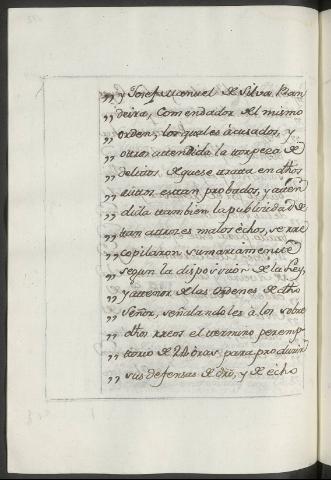 „ y Josef Manuel de Silva Ban
„ deira, Comendador del mismo
„ orden, los quales acusados, y
„ otros attendida la torpeza de
„ delitos de que se tratta en dhos
„ estan probados, y atten
„ dida tambiem la publicidad de
„ tan attrozes malos echos, se rre
„ copilaron sumariamente
„ segun la disposizion de la Ley,
„ y a ttenor de las Ordenes de dho
„ Señor, señalandoles à los sobre
„ dhos rreos el termino peremp
„ torio de 24 oras para produzir
„ sus defensas de dro, y de echo